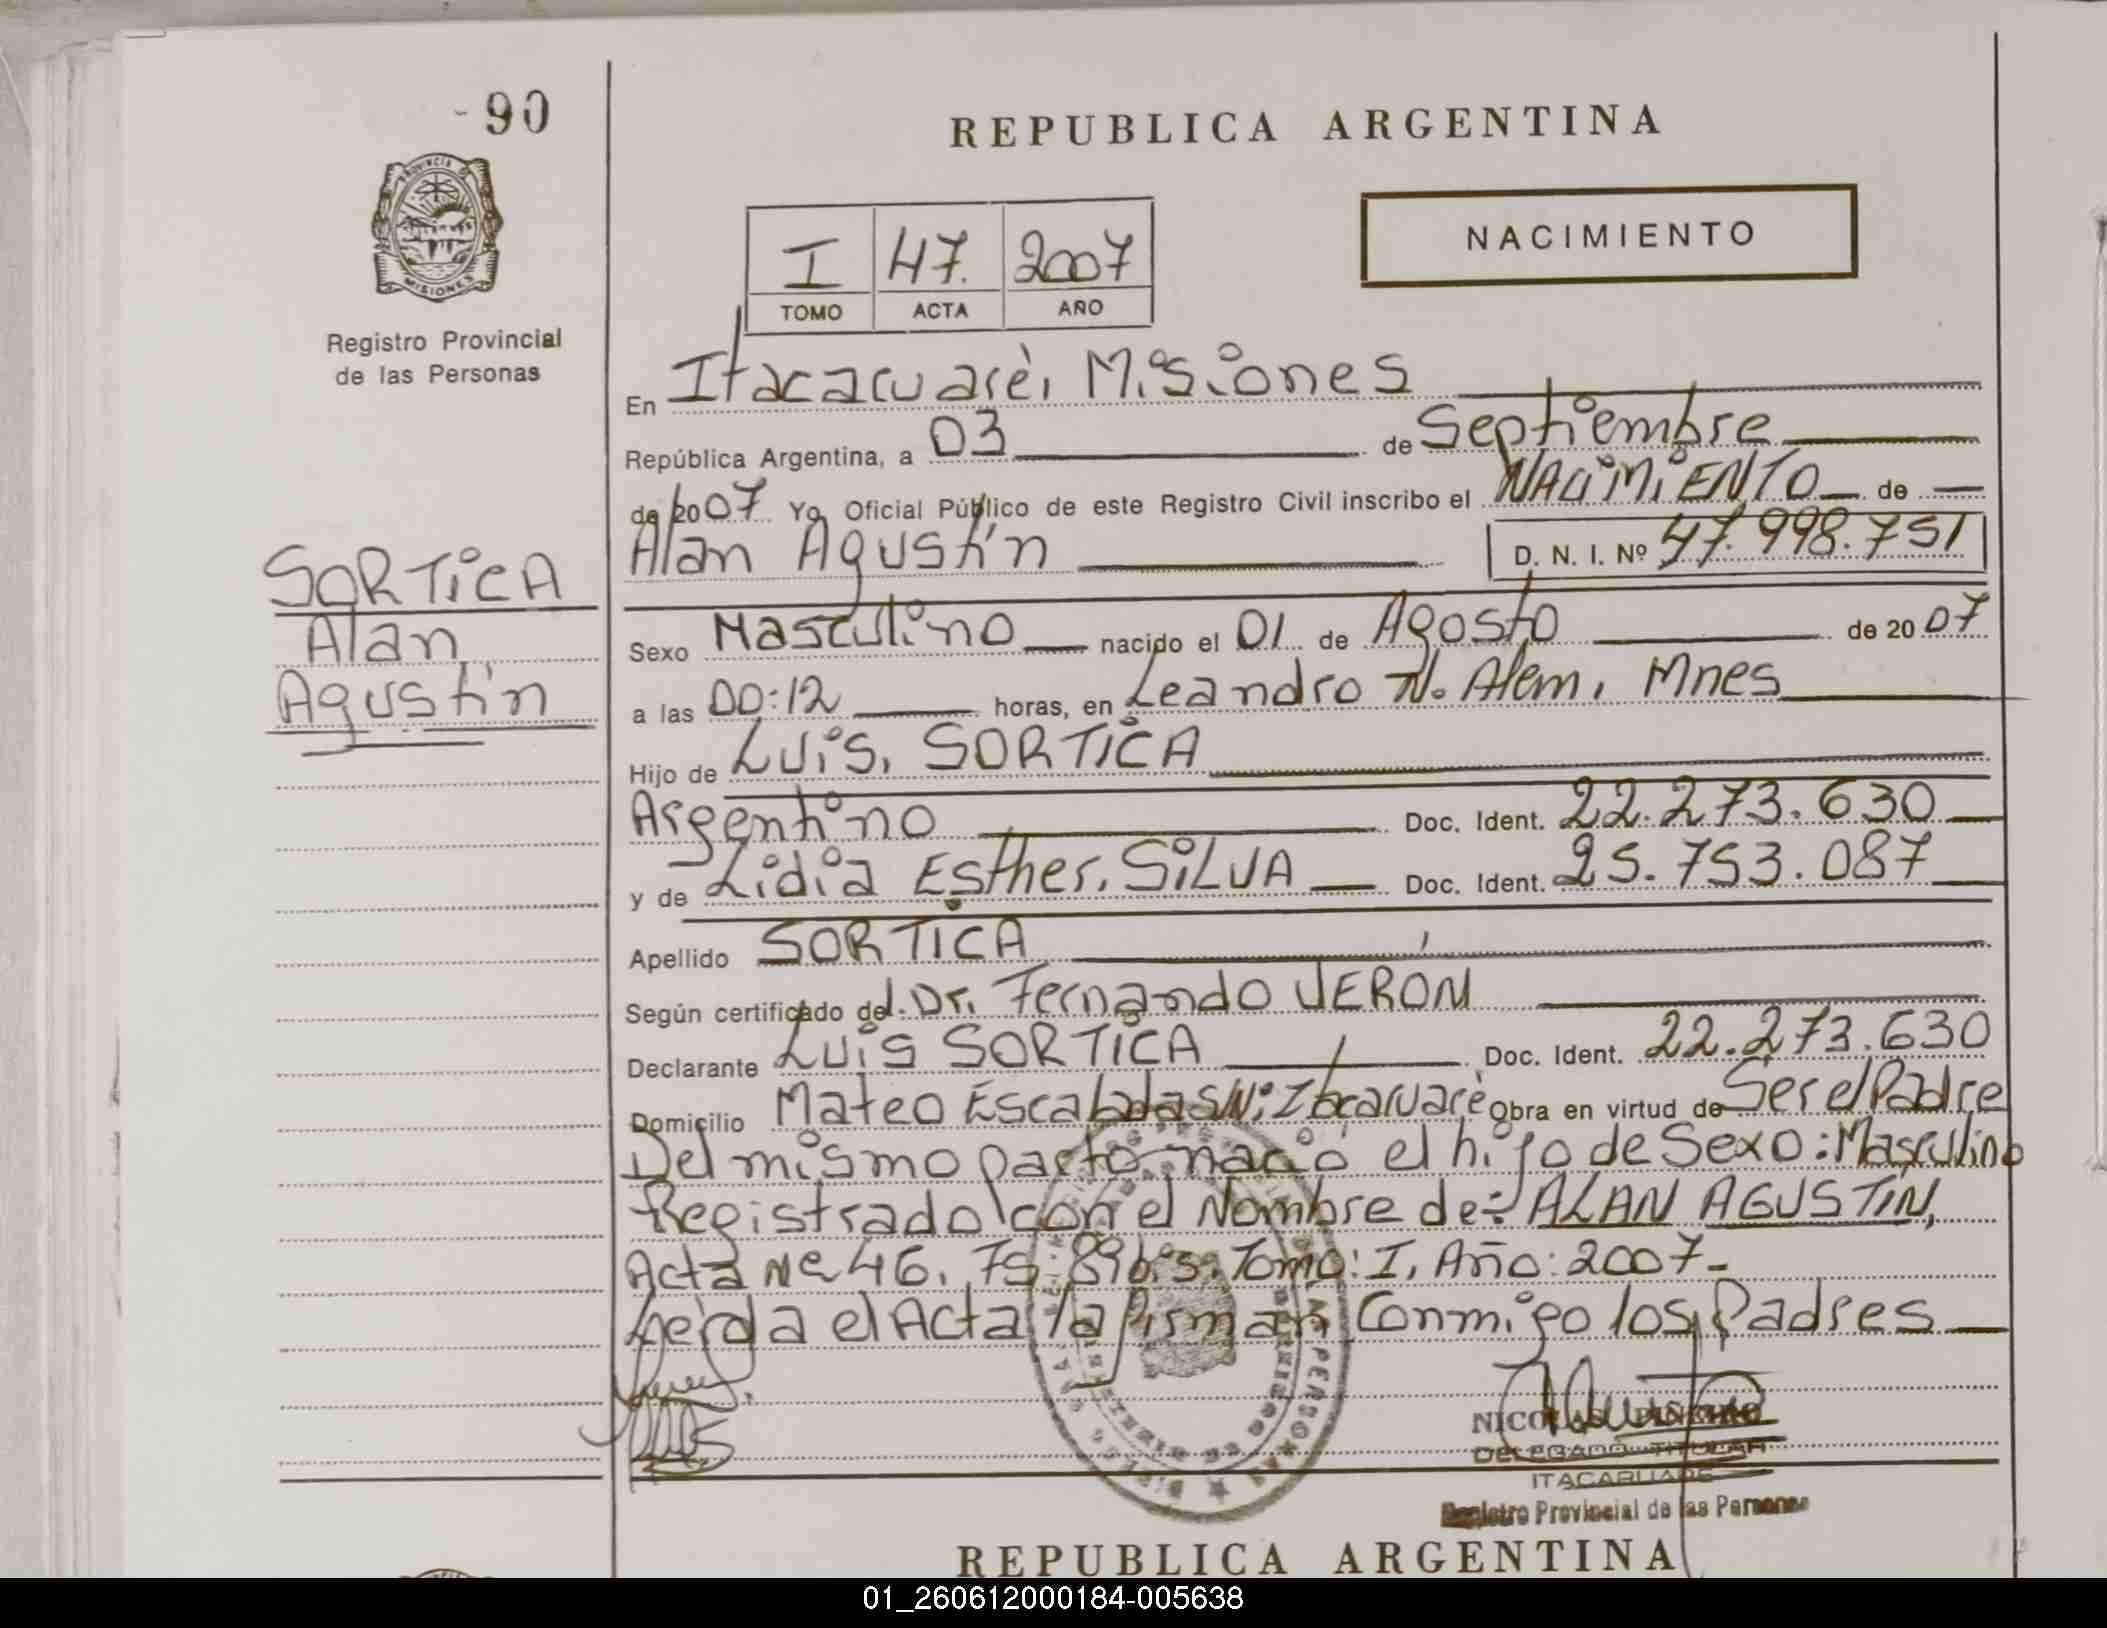 - 90
REPUBLICA ARGENTINA
PROVINCIA DE
MISIONES
NACIMIENTO
I 47. 2007
TOMO ACTA AÑO
Registro Provincial
de las Personas
En Itacacuaré, Misiones
República Argentina, a 03 de Septiembre
de 2007 Yo Oficial Público de este Registro Civil inscribo el NACIMIENTO de
Alan Agustín D. N. I. Nº 47.998.751
SORTICA
Alan
Agustín
Sexo Masculino nacido el 01 de Agosto de 2007
a las 00:12 horas, en Leandro N. Alem, Mnes
Hijo de Luis, SORTICA
Argentino Doc. Ident. 22.273.630
y de Lidia Esther, SILVA Doc. Ident. 25.753.087
Apellido SORTICA
Según certificado del. Dr. Fernando VERON
Declarante Luis SORTICA Doc. Ident. 22.273.630
Domicilio Mateo Escalada S/N: Itacaruaré Obra en virtud de Ser el Padre
Del mismo parto nació el hijo de Sexo: Masculino
Registrado con el Nombre de: ALAN AGUSTIN,
Acta Nº 46. Fs: 89 bis. Tomo: I, Año: 2007-
Leída el Acta la firman Conmigo los Padres
DELEGADO TITULAR
ITACARUARE
Registro Provincial de las Personas
REPUBLICA ARGENTINA
01_260612000184-005638